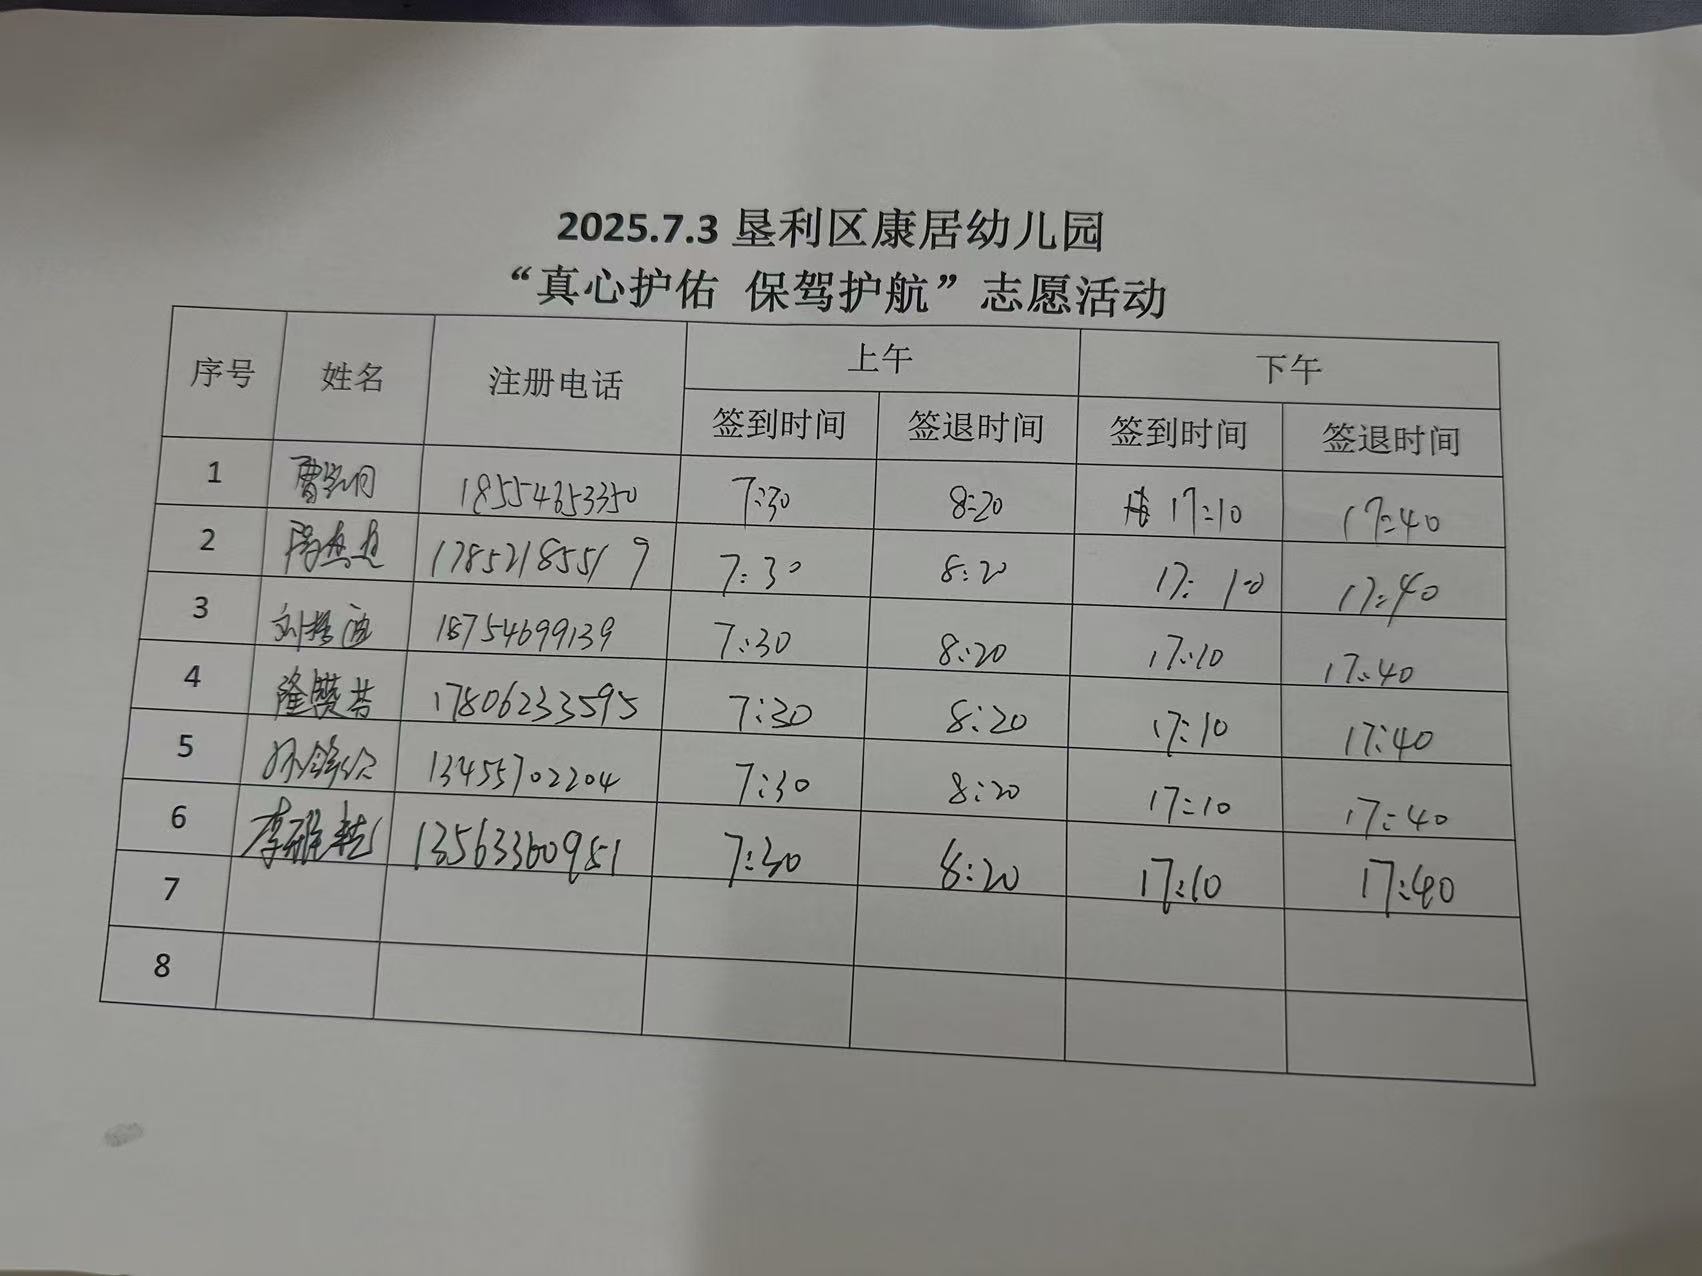 2025.7.3 垦利区康居幼儿园
“真心护佑 保驾护航”志愿活动
序号 姓名 注册电话 上午 下午
签到时间 签退时间 签到时间 签退时间
1 18554653350 7:30 8:20 17:10 17:40
2 17852185519 7:30 8:20 17:10 17:40
3 18754699139 7:30 8:20 17:10 17:40
4 17806233595 7:30 8:20 17:10 17:40
5 13455702204 7:30 8:20 17:10 17:40
6 13563360951 7:30 8:20 17:10 17:40
7
8